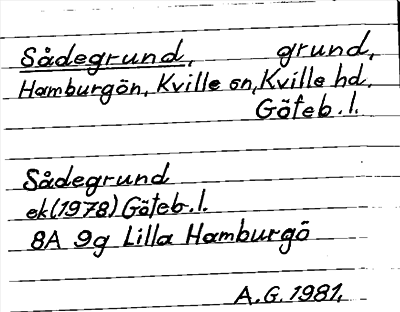 Sådegrund, grund,
Hamburgön, Kville sn, Kville hd.
Göteb. l.
Sådegrund
ek (1978) Göteb. l.
8A 9g Lilla Hamburgö
A.G. 1981.